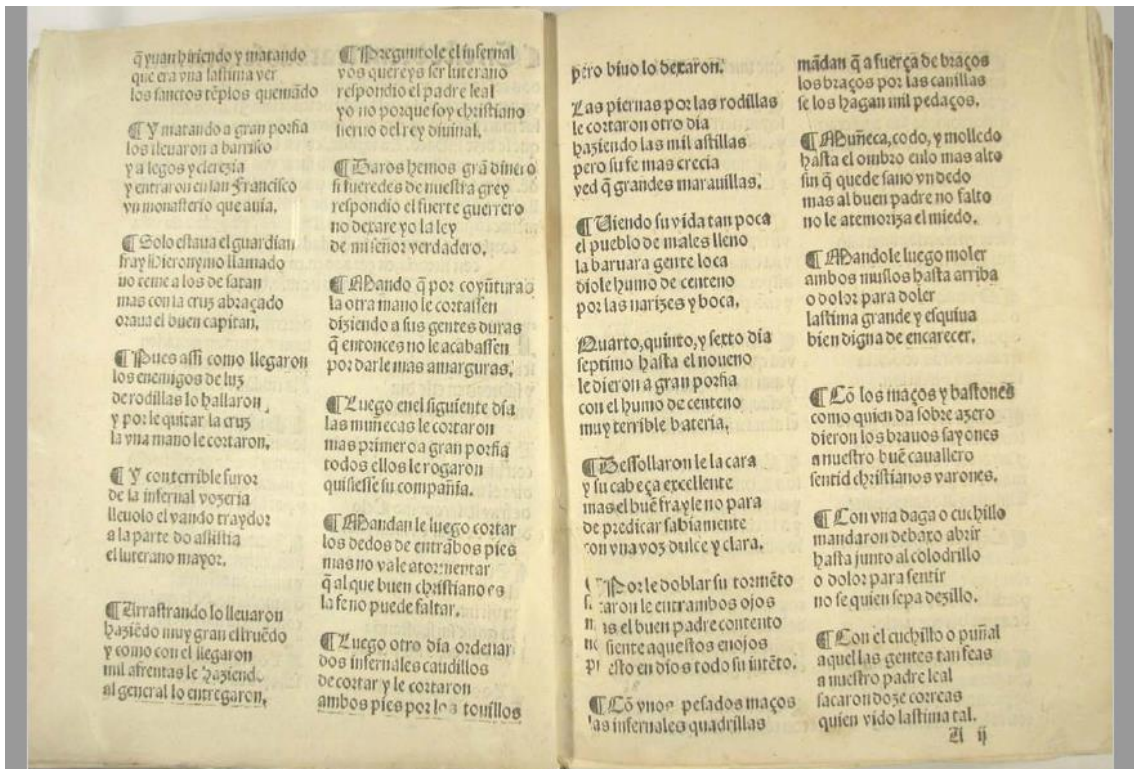 q̃ yuan hiriendo y matando
que era vna lastima ver
los sanctos tẽplos quemãdo
¶ Y matando a gran porfia
los lleuaron a barrisco
y a legos y clerezia
y entraron en san Francisco
vn monasterio que auia.
¶ Solo estaua el guardian
fray Hieronymo llamado
no teme a los de satan
mas con la cruz abraçado
oraua el buen capitan.
¶ Pues assi como llegaron
los enemigos de luz
de rodillas lo hallaron
y por le quitar la cruz
la vna mano le cortaron.
¶ Y con terrible furor
de la infernal vozeria
lleuolo el vando traydor
a la parte do assistia
el luterano mayor.
¶ Arrastrando lo lleuaron
haziẽdo muy gran estruẽdo
y como con el llegaron
mil afrentas le haziendo
al general lo entregaron.
¶ Preguntole el infernal
vos quereys ser luterano
respondio el padre leal
yo no porque soy christiano
sieruo del rey diuinal.
¶ Daros hemos grã dinero
si fueredes de nuestra grey
respondio el fuerte guerrero
no dexare yo la ley
de mi señor verdadero.
¶ Mando q̃ por coyũturas
la otra mano le cortassen
diziendo a sus gentes duras
q̃ entonces no le acabassen
por darle mas amarguras.
¶ Luego enel siguiente dia
las muñecas le cortaron
mas primero a gran porfia
todos ellos le rogaron
quisiesse su compañia.
¶ Mandan le luego cortar
los dedos de entrãbos pies
mas no vale atormentar
q̃ al que buen christiano es
la fe no puede faltar.
¶ Luego otro dia ordenar
dos infernales caudillos
de cortar y le cortaron
ambos pies por los touillos
pero biuo lo dexaron.
Las piernas por las rodillas
le cortaron otro dia
haziendo las mil astillas
pero su fe mas crecia
ved q̃ grandes marauillas.
¶ Viendo su vida tan poca
el pueblo de males lleno
la baruara gente loca
diole humo de centeno
por las narizes y boca.
Quarto, quinto, y sexto dia
septimo hasta el noueno
le dieron a gran porfia
con el humo de centeno
muy terrible bateria.
¶ Dessollaron le la cara
y su cabeça excellente
mas el buẽ frayle no para
de predicar sabiamente
con vna voz dulce y clara.
¶ Por le doblar su tormẽto
sacaron le entrambos ojos
mas el buen padre contento
no siente aquestos enojos
puesto en dios todo su intẽto.
¶ Cõ vnos pesados maços
las infernales quadrillas
mãdan q̃ a fuerça de braços
los braços por las canillas
se los hagan mil pedaços.
¶ Muñeca, codo, y molledo
hasta el ombro en lo mas alto
sin q̃ quede sano vn dedo
mas al buen padre no falto
no le atemoriza el miedo.
¶ Mandole luego moler
ambos muslos hasta arriba
o dolor para doler
lastima grande y esquiua
bien digna de encarecer.
¶ Cõ los maços y bastones
como quien da sobre azero
dieron los brauos sayones
a nuestro buẽ cauallero
sentid christianos varones.
¶ Con vna daga o cuchillo
mandaron debaxo abrir
hasta junto al colodrillo
o dolor para sentir
no se quien sepa dezillo.
¶ Con el cuchillo o puñal
aquellas gentes tan feas
a nuestro padre leal
sacaron doze correas
quien vido lastima tal.
A ij